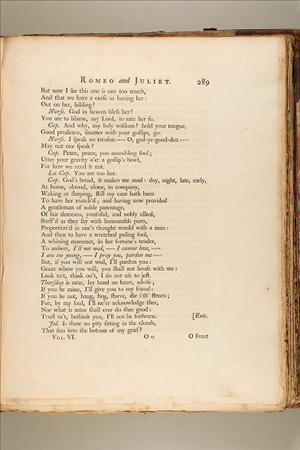 ROMEO and JULIET. 289
But now I see this one is one too much,
And that we have a curse in having her:
Out on her, hilding!
Nurse. God in heaven bless her!
You are to blame, my Lord, to rate her so.
Cap. And why, my lady wisdom? hold your tongue,
Good prudence, smatter with your gossips, go.
Nurse. I speak no treason — O, god-ye-good-den —
May not one speak?
Cap. Peace, peace, you mumbling fool;
Utter your gravity o'er a gossip's bowl,
For here we need it not.
La. Cap. You are too hot.
Cap. God's bread, it makes me mad: day, night, late, early,
At home, abroad, alone, in company,
Waking or sleeping, still my care hath been
To have her match'd; and having now provided
A gentleman of noble parentage,
Of fair demeans, youthful, and nobly allied,
Stuff'd as they say with honourable parts,
Proportion'd as one's thought would with a man:
And then to have a wretched puling fool,
A whining mammet, in her fortune's tender,
To answer, I'll not wed, — I cannot love, —
I am too young, — I pray you, pardon me —
But, if you will not wed, I'll pardon you:
Graze where you will, you shall not house with me:
Look to't, think on't, I do not use to jest.
Thursday is near, lay hand on heart, advise;
If you be mine, I'll give you to my friend:
If you be not, hang, beg, starve, die i'th' streets;
For, by my soul, I'll ne'er acknowledge thee,
Nor what is mine shall ever do thee good:
Trust to't, bethink you, I'll not be forsworn. [Exit.
Jul. Is there no pity sitting in the clouds,
That sees into the bottom of my grief?
VOL. VI. O o O sweet